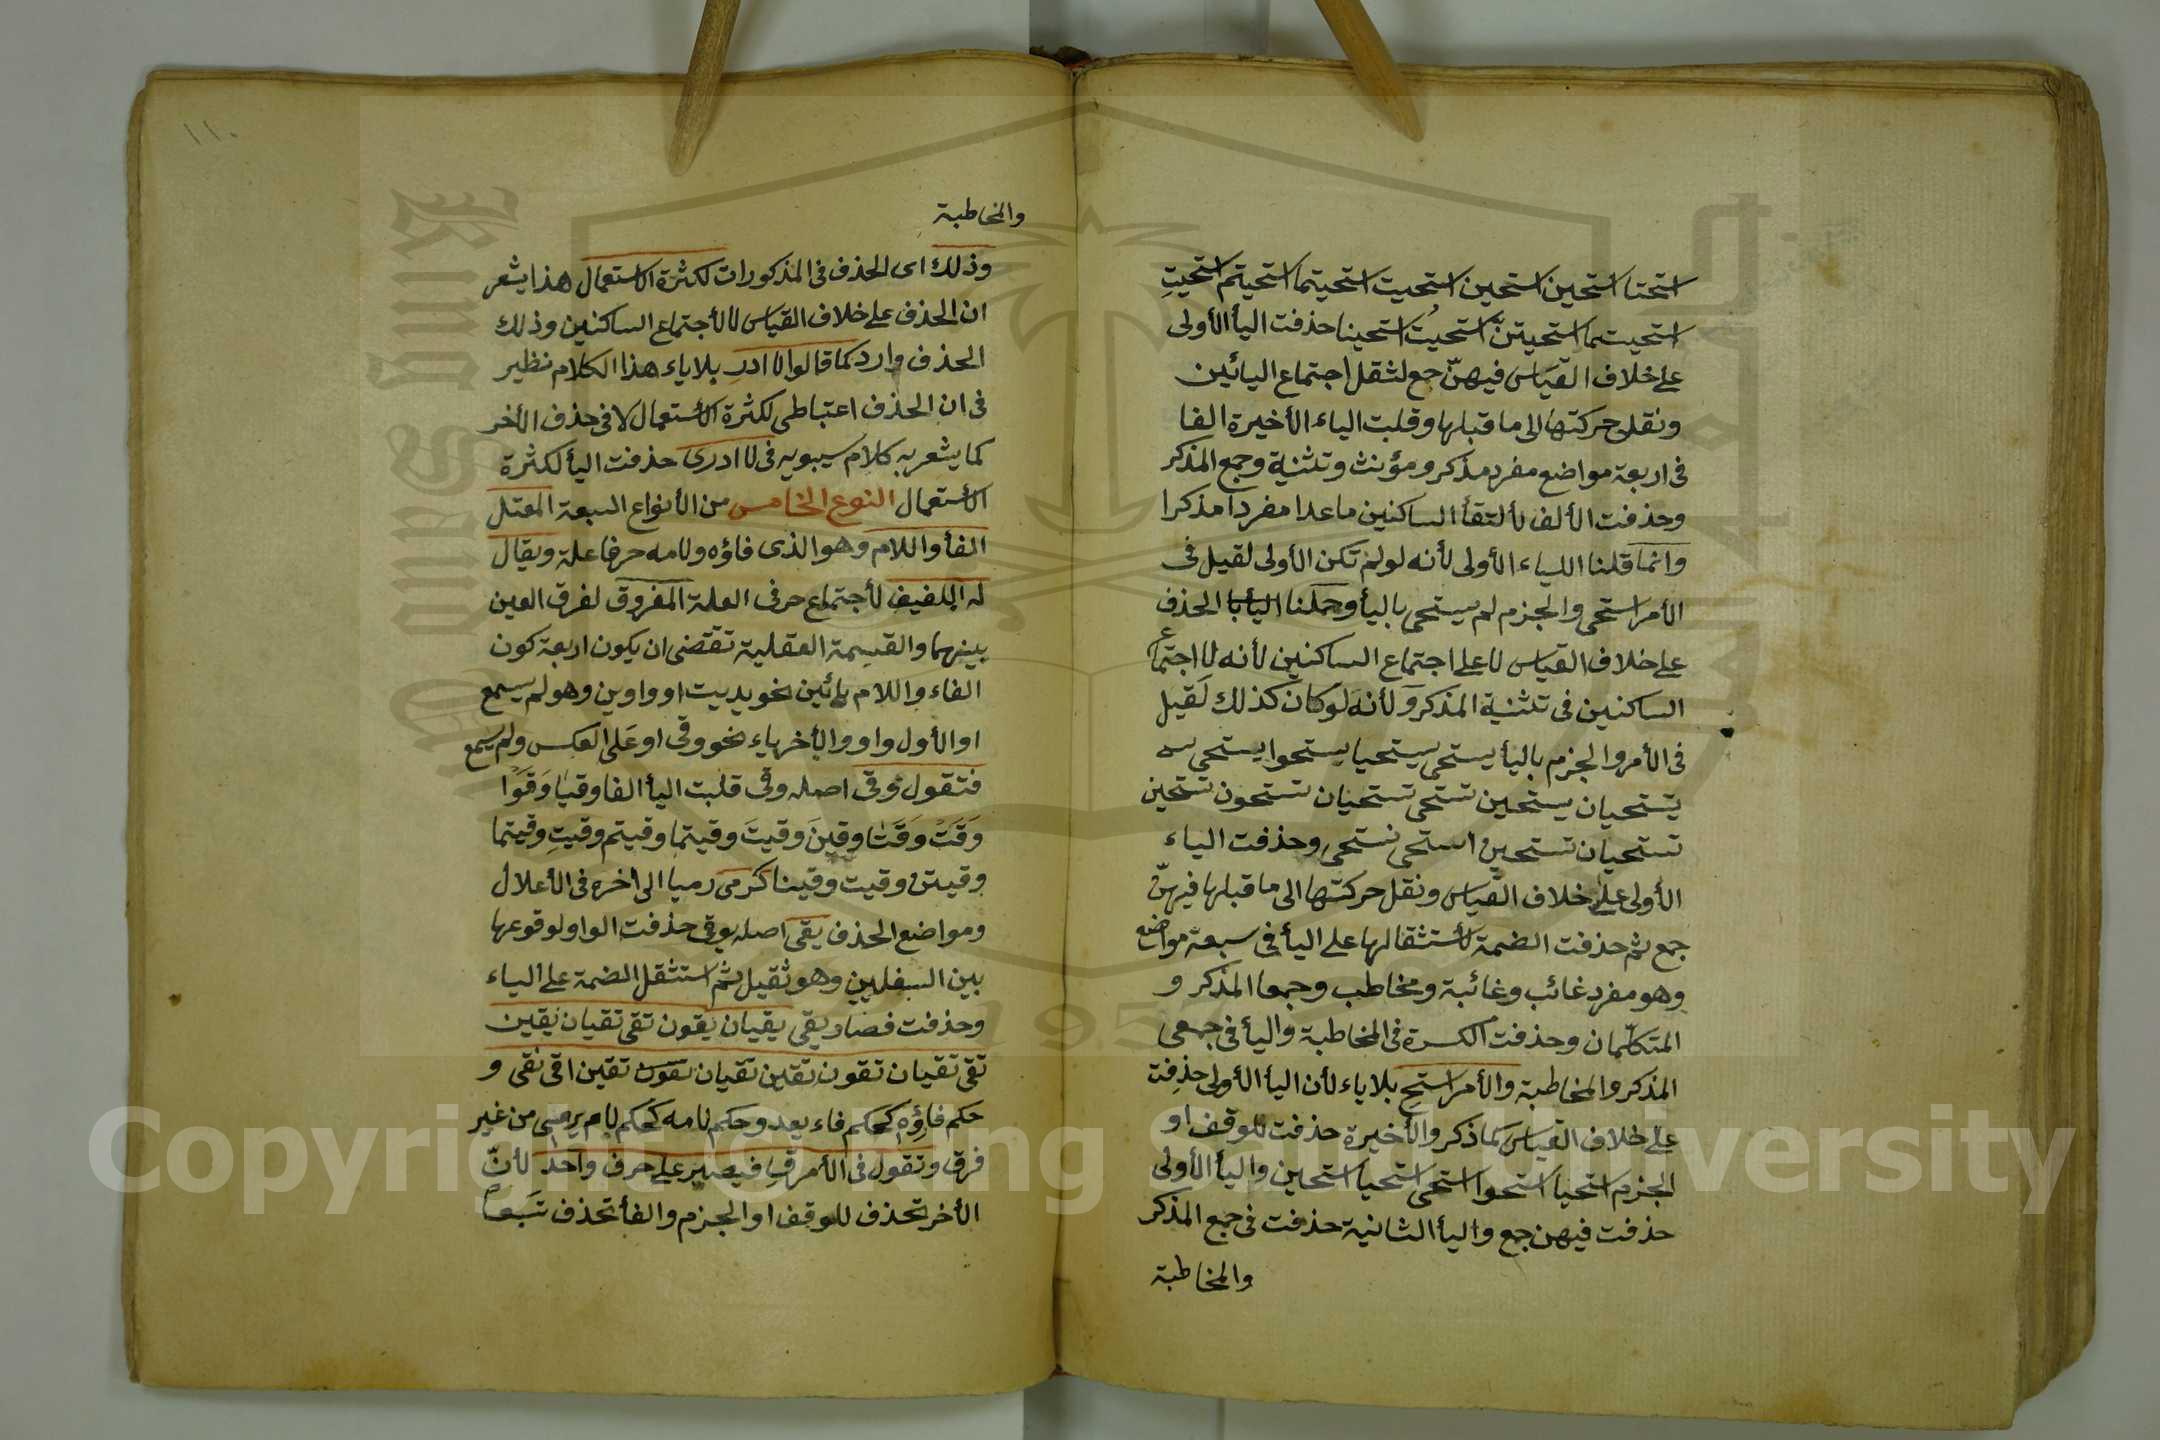 استحتا استحين استحين استحيت استحيتما استحيتم استحيتِ
استحيتما استحيتنّ استحيتُ استحينا حذفت اليأ الأولى
على خلاف القياس فيهنّ جمع لثقل اجتماع اليائين
ونقل حركتها الى ما قبلها وقلبت الياء الأخيرة الفا
فى اربعة مواضع مفرد مذكر ومؤنث وتثنية وجمع المذكر
وحذفت الألف لألتقأ الساكنين ماعدا مفردا مذكرا
وانما قلنا الياء الأولى لأنه لو لم تكن الأولى لقيل فى
الأمر استحى والجزم لم يستحى باليأ وحملنا اليأ با الحذف
على خلاف القياس لا على اجتماع الساكنين لأنه لا اجتماع
الساكنين فى تثنية المذكر وَلأنه لوكان كذلك لَقيل
فى الأمر والجزم باليأ يستحى يستحيا يستحوا يستحى
يستحيان يستحين تستحى تستحيان تستحون تستحين
تستحيان تستحين استحى نستحى وحذفت الياء
الأولى على خلاف القياس ونقل حركتها الى ما قبلها فيهنّ
جمع ثم حذفت الضمة لأستثقالها على اليأ فى سبعة مواضع
وهو مفرد غائب وغائبة ومخاطب وجمعا المذكر و
المتكلّمان وحذفت الكسرة فى المخاطبة واليأ فى جمعى
المذكر والمخاطبة والأمر استحِ بلا ياء لأن اليأ الأولى حذفت
على خلاف القياس كما ذكر والأخيرة حذفت للوقف او
الجزم استحيا استحوا استحى استحيا استحاين واليأ الأولى
حذفت فيهن جمع واليأ الثانية حذفت فى جمع المذكر
والمخاطبة
١١٠
والمخاطبة
وذلك اى الحذف فى المذكورات لكثرة الاستعمال هذا يشعر
ان الحذف على خلاف القياس لا لأجتماع الساكنين وذلك
الحذف وارد كما قالوا لا ادرِ بلا ياء هذا الكلام نظير
فى ان الحذف اعتباطى لكثرة الأستعمال لا فى حذف الأخر
كما يشعر به كلام سيبويه فى لا ادرى حذفت اليأ لكثرة
الأستعمال النوع الخامس من الأنواع السبعة المعتل
الفأ واللام وهو الذى فاؤه ولامه حرفا علة ويقال
له اللفيف لأجتماع حرفى العلة المفروق لفرق العين
بينهما والقسمة العقلية تقتضى ان يكون اربعة كون
الفاء واللام يائين نحو يديت او واوين وهو لم يسمع
او الأول واو والأخر ياء نحو وقى او عَلى العكس ولم يسمع
فتقول وقى اصله وقى قلبت اليأ الفا وقيا وَقَوْا
وَقَتْ وَقَتا وقينَ وقيتَ وقيتما وقيتم وقيتِ وقيتما
وقيتن وقيت وقينا كرمى رميا الى اخره فى الأعلال
ومواضع الحذف يقى اصله يوقى حذفت الواو لوقوعها
بين السفليين وهو ثقيل ثم استثقل الضمة على الياء
وحذفت فصار يقى يقيان يقون تقى تقيان يقين
تقى تقيان تقون تقين تقيان تقين اقى نقى و
حكم فاؤه كحكم فاء يعد وحكم لامه كحكم لام يرمى من غير
فرق وتقول فى الأمر قِ فيصير على حرف واحد لأنّ
الأخر تحذف للوقف او الجزم والفأ تحذف تَبَعا
Copyright © King Saud University
King Saud University
195